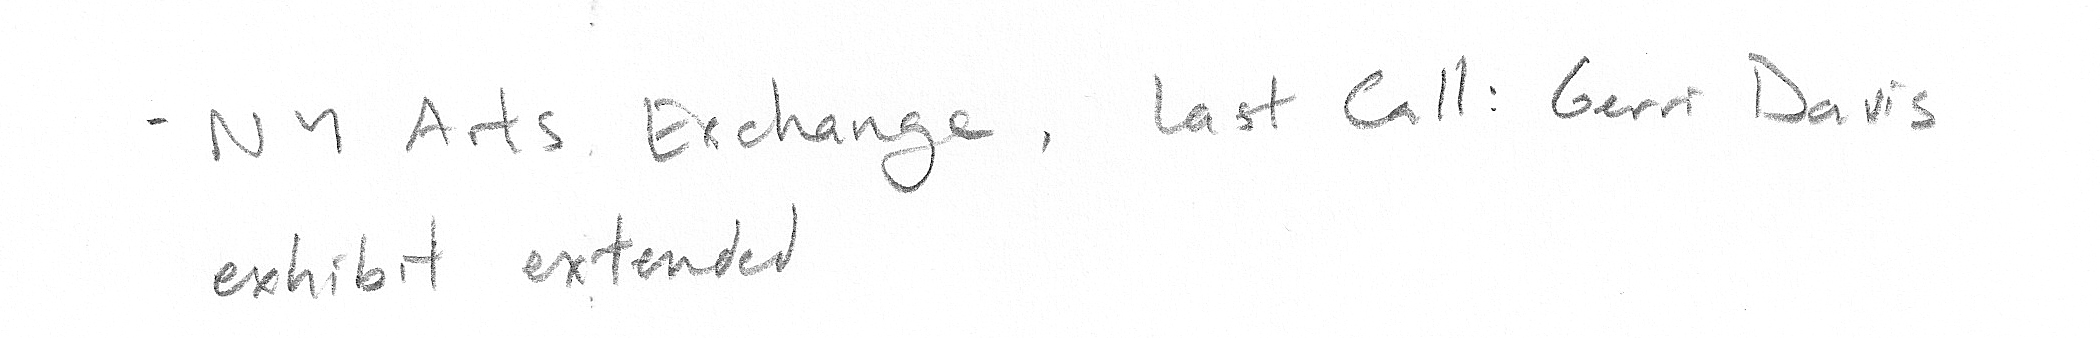 - NY Arts Exchange, Last Call: Gerri Davis
exhibit extended